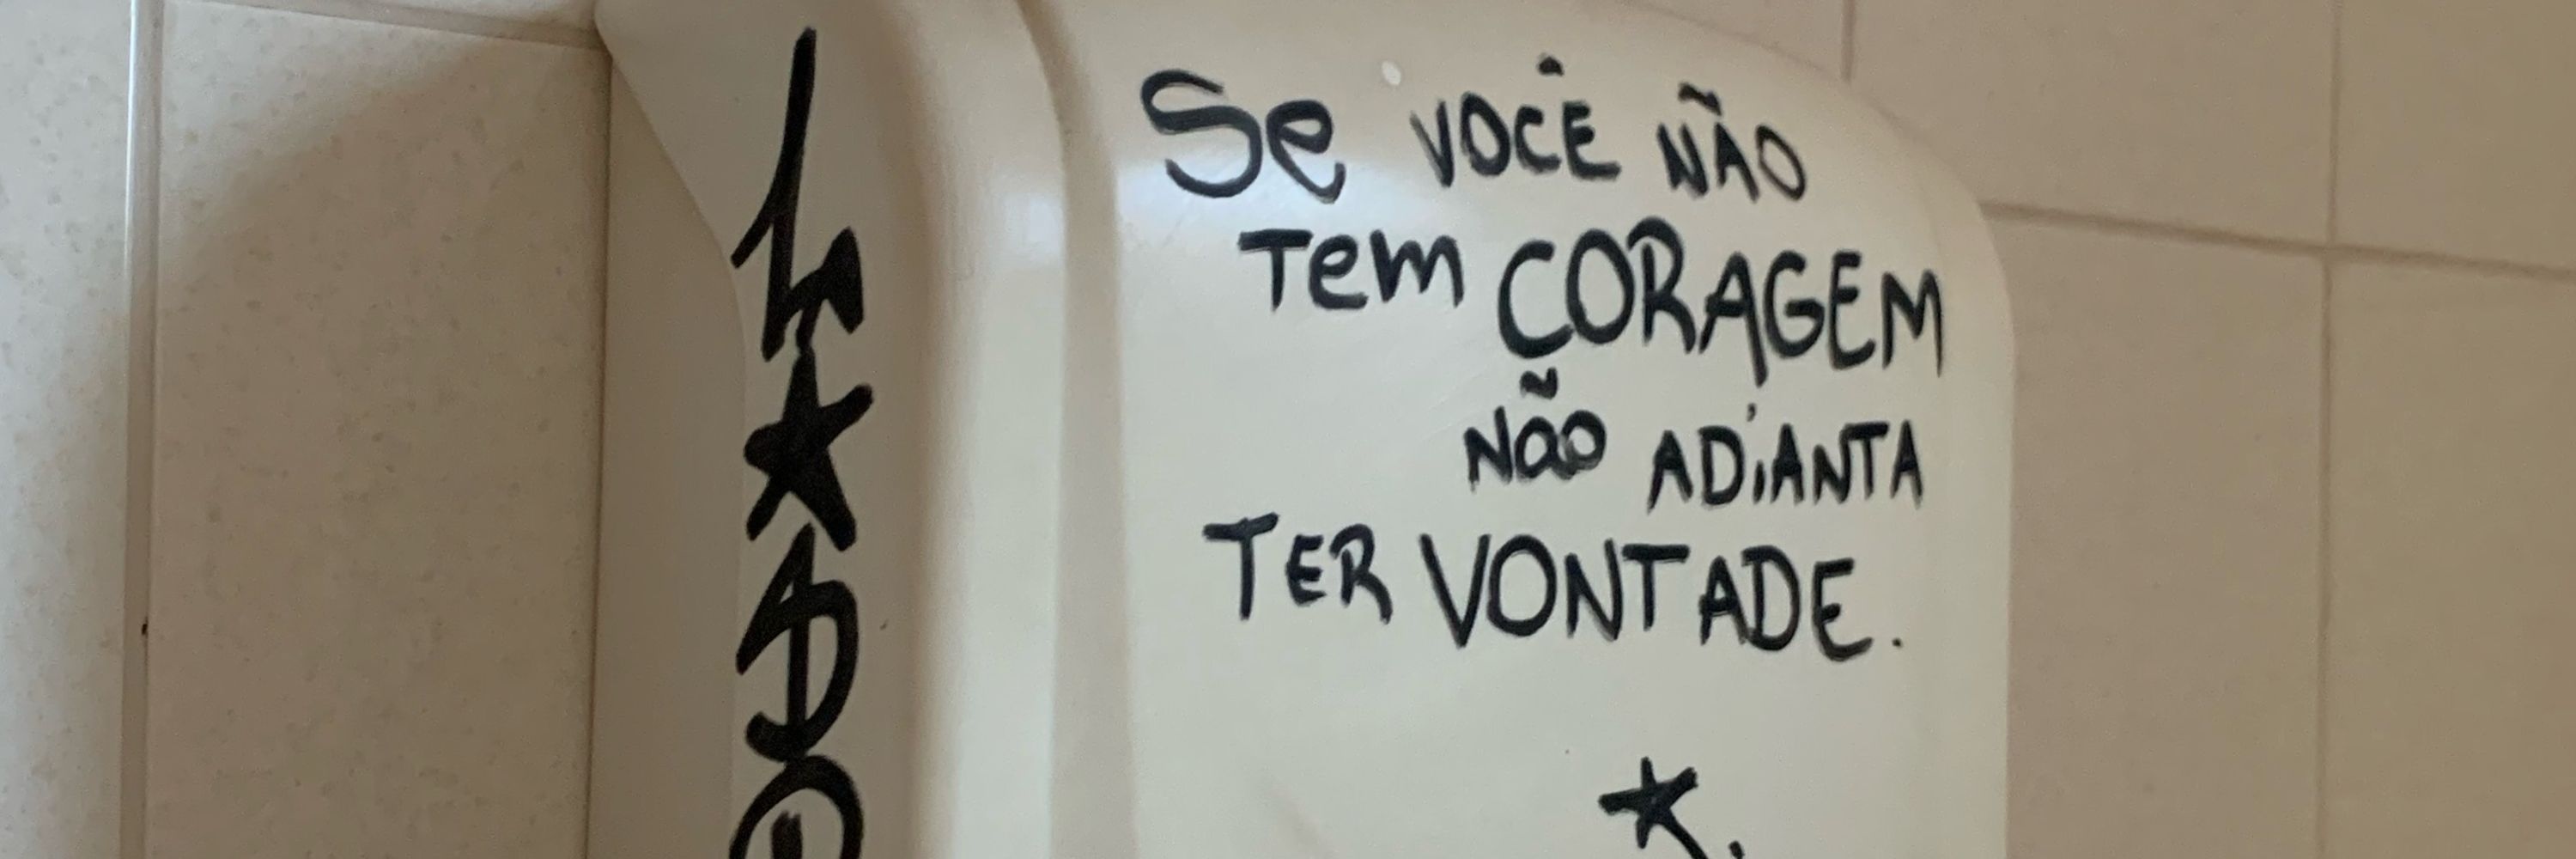 Se VOCÊ NÃO
Tem CORAGEM
Não ADiANTA
TER VONTADE.